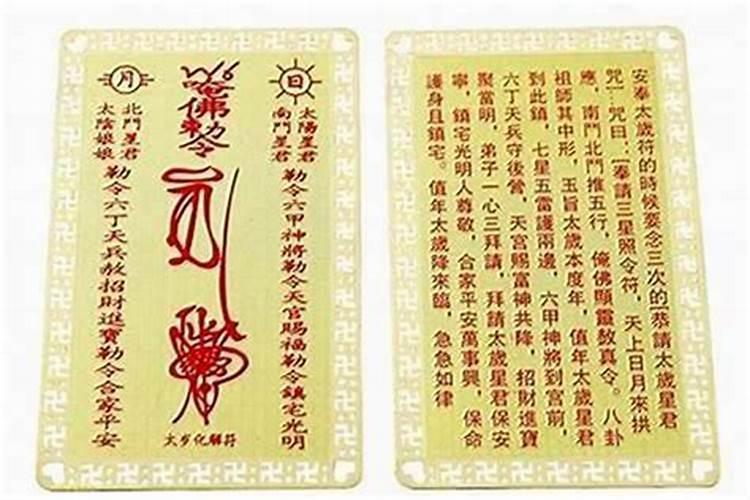 日
太陽星君
南鬥星君
勒令六甲神將勒令天官賜福勒令鎮宅光明
佛勅令
太岁化解符
月
北鬥星君
太陰娘娘
勒令六丁天兵赦招財進寶勒令合家平安
安奉太歲符的時候要念三次的[恭請太歲星君
咒]…咒曰:[奉請三星照令符,天上日月來拱
應,南鬥北鬥推五行,俺佛顯靈敎真令。八卦
祖師其中形,玉旨太歲本度年,值年太歲星君
到此鎮,七星五雷護兩邊,六甲神將到宮前,
六丁天兵守後營,天宮賜富神共降,招財進寶
聚當明,弟子一心三拜請,拜請太歲星君保安
寧,鎮宅光明人尊敬,合家平安萬事興,保命
護身且鎮宅。值年太歲降來臨,急急如律